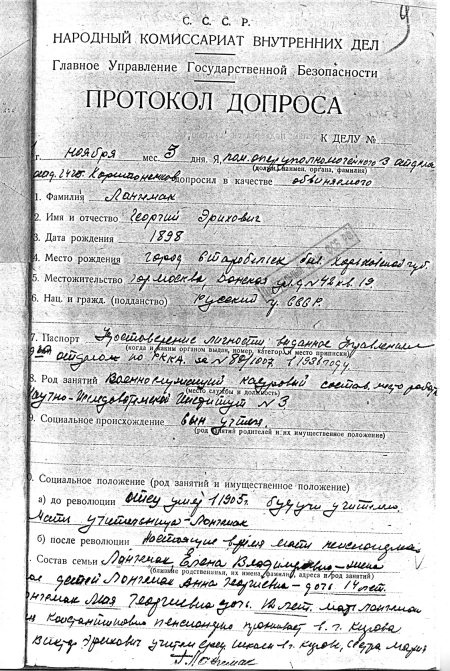 9
С. С. С. Р.
НАРОДНЫЙ КОМИССАРИАТ ВНУТРЕННИХ ДЕЛ
Главное Управление Государственной Безопасности
ПРОТОКОЛ ДОПРОСА
К ДЕЛУ №
г. ноября мес. 5 дня. Я, пом. оперуполномоченного 3 отдела
(должн., наимен. органа, фамилия)
допросил в качестве обвиняемого
1. Фамилия Лангмак
2. Имя и отчество Георгий Эрихович
3. Дата рождения 1898
4. Место рождения город Старобельск быв. Харьковской губ.
5. Местожительство гор. Москва, Донская ул. д. № 42 кв. 19.
6. Нац. и гражд. (подданство) Русский гр. СССР.
7. Паспорт Удостоверение личности выданное Управлением
(когда и каким органом выдан, номер, категор. и место приписки)
отделом по РККА. за № 1936 году.
8. Род занятий Военнослужащий кадровый состав, место работы
(место службы и должность)
Научно-Исследовательский Институт № 3
9. Социальное происхождение сын учителя.
(род занятий родителей и их имущественное положение)
0. Социальное положение (род занятий и имущественное положение)
а) до революции отец умер 1905 г. будучи учителем.
мать учительница-Лангмак
б) после революции настоящее время мать пенсионерка
. Состав семьи Лангемак Елена Владимировна-жена
(ближние родственники, их имена, фамилии, адреса и род занятий)
Лангемак Анна Георгиевна-дочь 14 лет.
Майя Георгиевна дочь 12 лет. мать Лангемак
Константиновна пенсионерка проживает в г.
Виктор Эрихович учитель сред. школы в г. сестра Мария
Лангемак